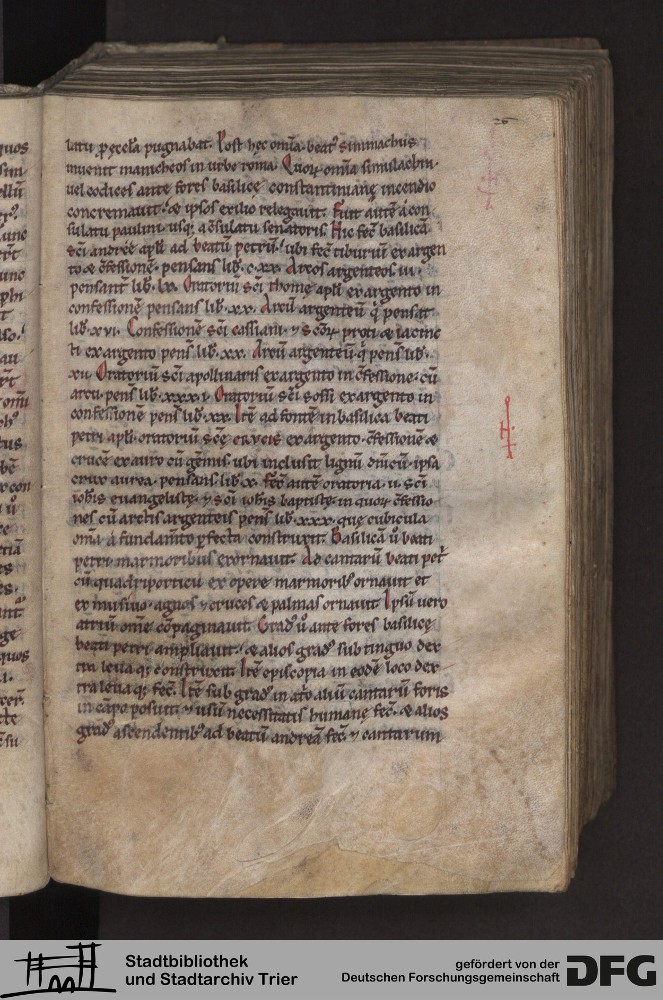 26
latu p ęcclā pugnabat. Post hęc omīa beat᷒ simmachus
inuenit manicheos in urbe roma. Quoꝝ omīa simulachra.
uel codices ante fores basilicę constantinianę incendio
concremauit. & ipsos exilio relegauit. Fuit autē a con
sulatu paulini. usq; a c̄sulatu senatoris. Hic fec̄ basilicā
sc̄i andreę apl̄i ad beatū petrū. ubi fec̄ tiburiū ex argen
to & c̄fessionē. pensans lib̄. c.xx. Arcos argenteos. iii.
pensant lib̄. lx. Oratoriū sc̄i thomę apl̄i ex argento in
confessionē pensans lib̄. xx. Arcū argenteū q̄ pensat
lib̄. xvi. Confessionē sc̄i cassiani. ⁊ sc̄oꝝ proti & iacinc
ti ex argento pens̄ lib̄. xx. Arcū argenteū q̄ pens̄ lib̄.
xii. Oratoriū sc̄i apollinaris ex argento in c̄fessione. cū
arcu. pens̄ lib̄. xxxi. Oratoriū sc̄i sossi ex argento in
confessionē pens̄ lib̄. xx. Itē ad fontē in basilica beati
petri apl̄i. oratoriū sc̄ę crucis ex argento. c̄fessionē &
crucē ex auro cū gēmis. ubi inclusit lignū dn̄icū. ipsa
crux aurea. pensans lib̄. x. Fec̄ autē oratoria. ii. sc̄i
ioh̄is euangelistę. ⁊ sc̄i ioh̄is baptistę. in quoꝝ c̄fessio
nes cū arcis argenteis pens̄ lib̄. xxx. que cubicula
om̄a a fundam̄to ꝑfecta construxit. Basilicā ů beati
petri marmoribus exornauit. Ad cantarū beati pet̄
cū quadriporticu ex opere marmorib᷒ ornauit et
ex musiuo. agnos ⁊ cruces & palmas ornauit. Ipsū uero
atriū om̄e cōpaginauit. Grad᷒ ů ante fores basilicę
beati petri ampliauit. & alios grad᷒ sub tinguo dex
tra leua q; construxit. Itē episcopia in eodē loco dex
tra leua q; fec̄. Itē sub grad᷒ in atō aliū cantarū foris
in cāpo posuit. ⁊ usū necessitatis humanę fec̄. & alios
grad᷒ ascendentib᷒ ad beatū andreā fec̄ ⁊ cantarum
Stadtbibliothek
und Stadtarchiv Trier
gefördert von der
Deutschen Forschungsgemeinschaft
DFG